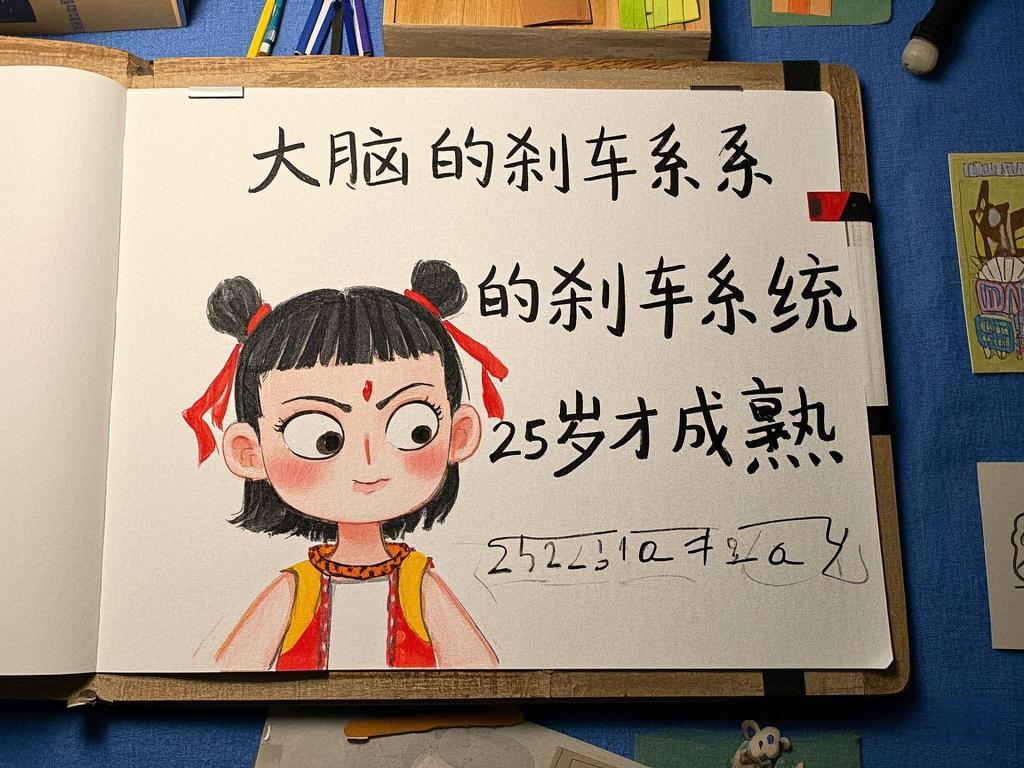 大脑的刹车系系
的刹车系统
25岁才成熟